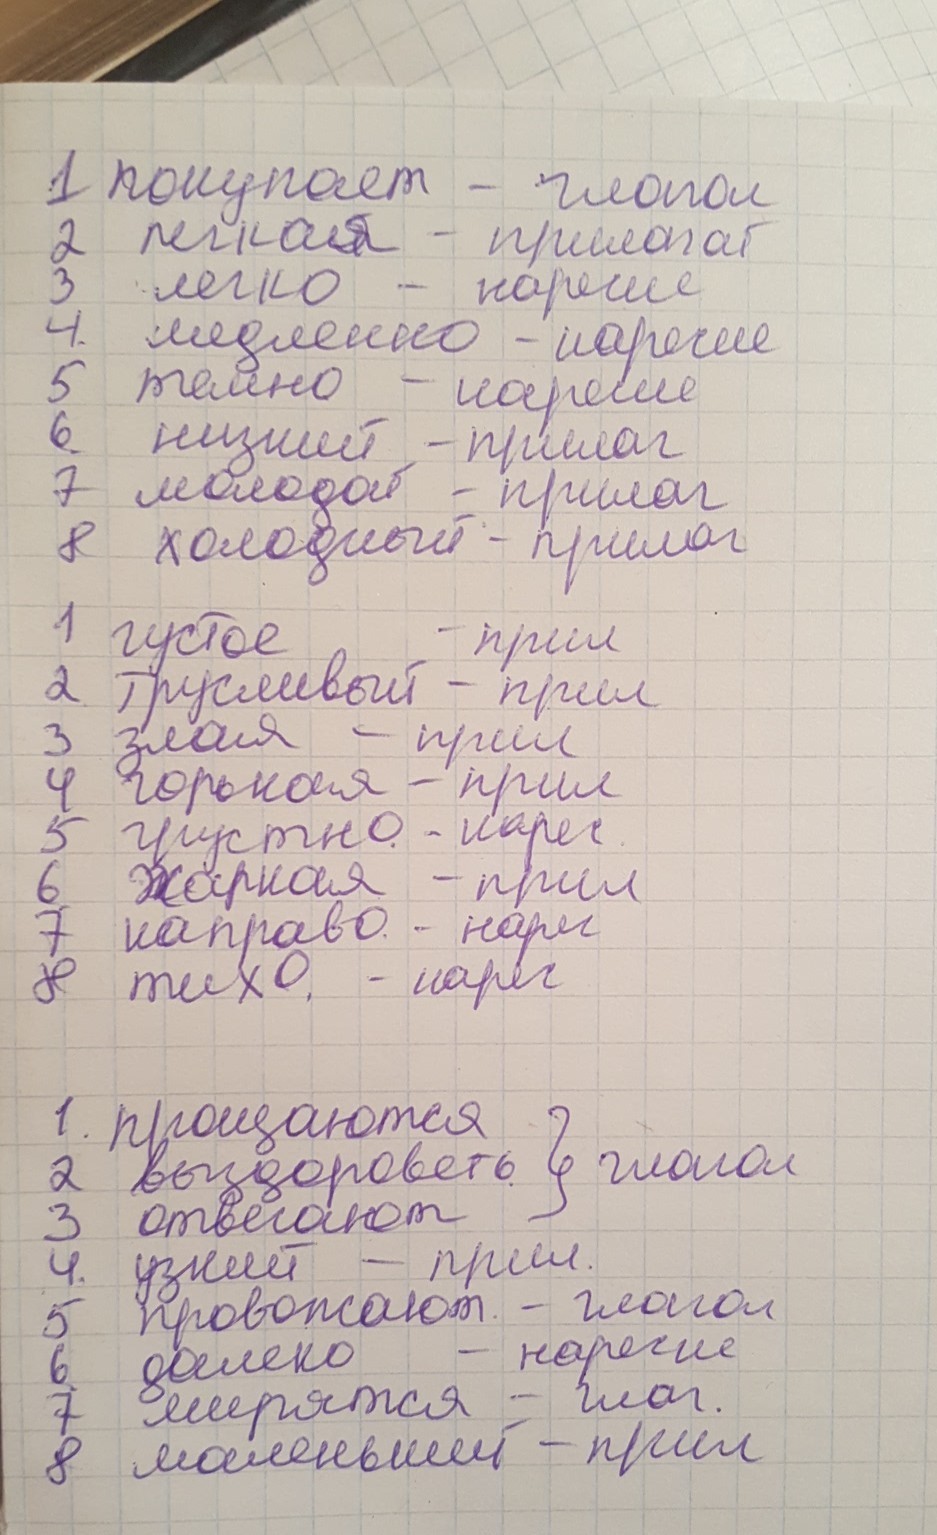 1 покупает - глагол
2 легкая - прилагат
3 легко - наречие
4. медленно - наречие
5 темно - наречие
6 низкий - прилаг
7 молодой - прилаг
8 холодный - прилаг
1 густое - прил
2 трусливый - прил
3 злая - прил
4 горькая - прил
5 грустно. - нареч
6 жаркая - прил
7 направо. - нареч
8 тихо. - нареч
1. прощаются
2 выздороветь } глагол
3 отвечают
4. узкий - прил.
5 провожают. - глагол
6 далеко - наречие
7 мирятся - глаг.
8 маленький - прил